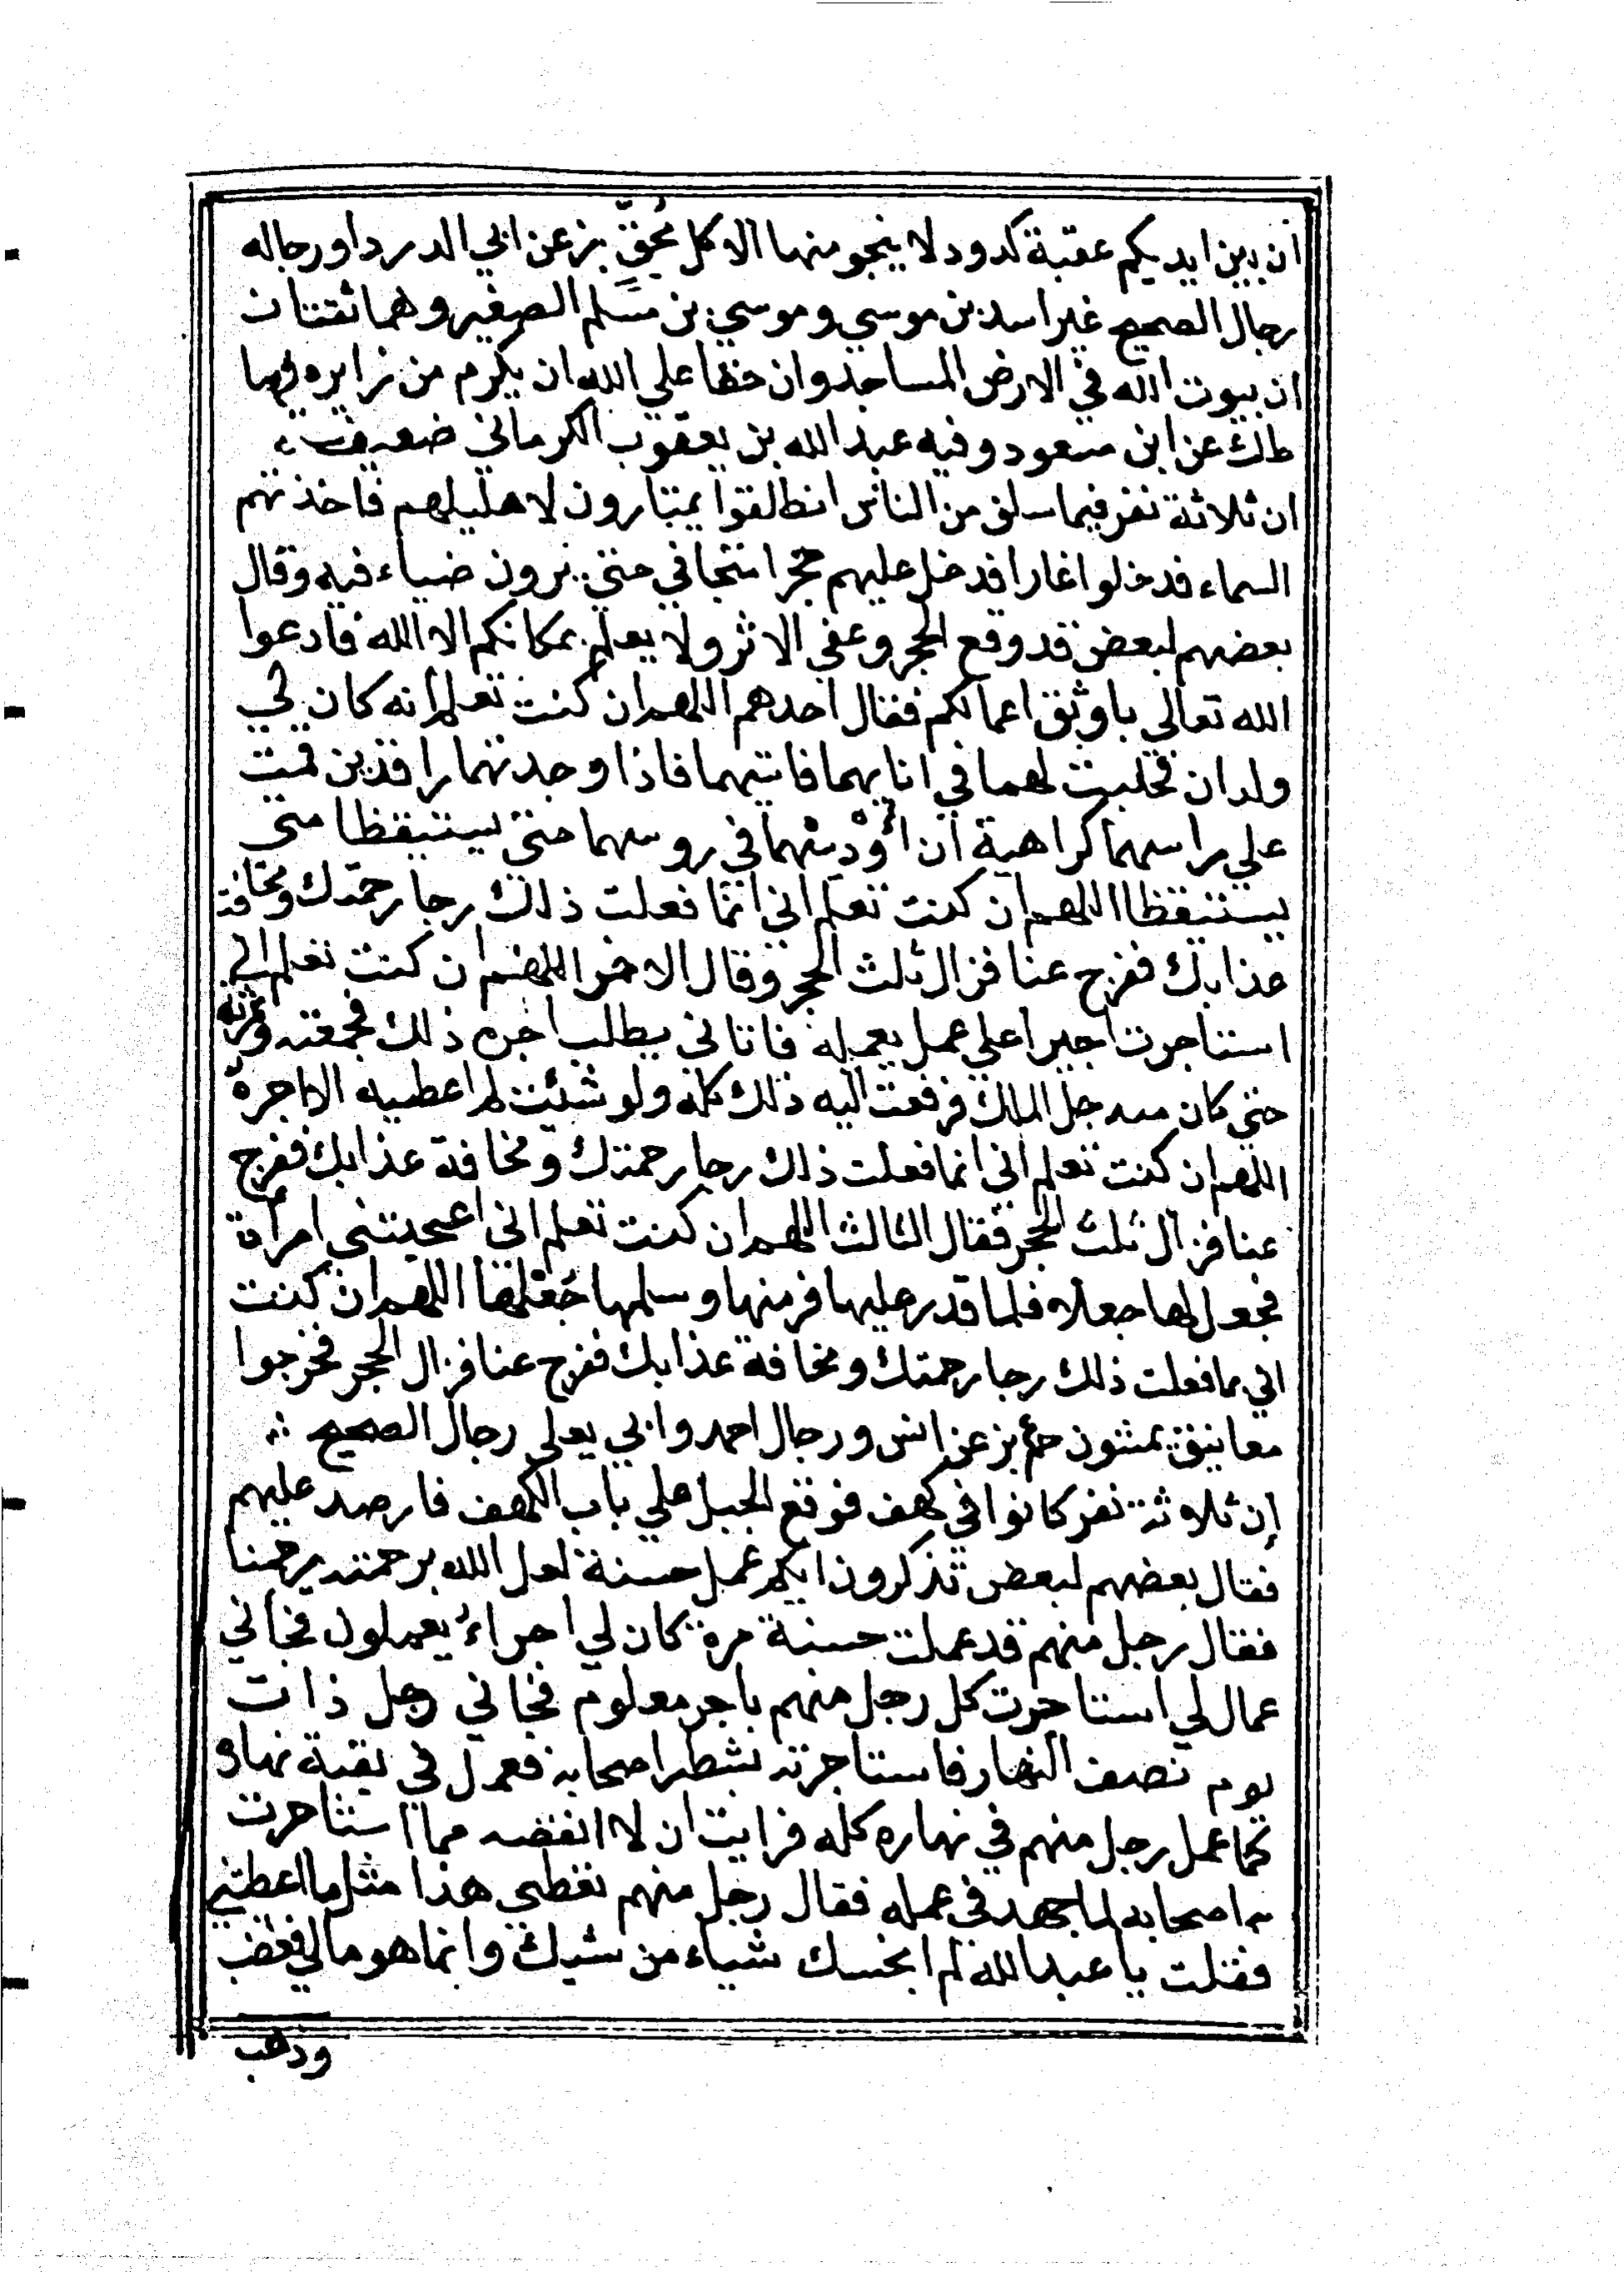 ان بين ايديكم عقبة كدود لا ينجو منها الا كل مُخِفٍّ بز عن ابي الدرداورجاله
رجال الصحيح غير اسد بن موسي وموسي بن مسلم الصغير وهما ثقتان
ان بيوت الله في الارض المساجد وان حقا علي الله ان يكرم من زايره فيها
طك عن ابن مسعود وفيه عبد الله بن يعقوب الكرماني ضعيف
ان ثلاثة نفر فيما سلف من الناس انطلقوا يمتارون لاهليهم فاخذتهم
السماء فدخلوا غارا فدخل عليهم حجر متجافي حتي يرون ضياء فيه وقال
بعضهم لبعض قد وقع الحجر وعفي الاثر ولا يعلم بمكانكم الا الله فادعوا
الله تعالي باوثق اعمالكم فقال احدهم اللهم ان كنت تعلم انه كان لي
ولدان فحلبت لهما في انايهما فاتيهما فاذا وجدتهما راقدين قمت
علي راسهما كراهية ان اؤذيهما في روسهما حتي يستيقظا متي
يستيقظا اللهم ان كنت تعلم اني انما فعلت ذلك رجا رحمتك ومخافة
عذابك ففرج عنا فزال ثلث الحجر وقال الاخر اللهم ان كنت تعلم اني
استاجرت اجيرا علي عمل يعمله فاتاني يطلب اجره ذلك فجمعته وثمرته
حتي كان منه جل المال فرفعت اليه ذلك كله ولو شئت لم اعطيه الا اجرة
اللهم ان كنت تعلم اني انما فعلت ذلك رجا رحمتك ومخافة عذابك ففرج
عنا فزال ثلث الحجر فقال الثالث اللهم ان كنت تعلم اني اعجبتني امرأة
فجعل لها جعلا فلما قدر عليها فر منها وسلمها جُعْلها اللهم ان كنت
اني بما فعلت ذلك رجا رحمتك ومخافة عذابك ففرج عنا فزال الحجر فخرجوا
معانيق يمشون حم بز عن انس ورجال احمد وابي يعلي رجال الصحيح
إن ثلاثة نفر كانوا في كهف فوقع الجبل علي باب الكهف فارصد عليهم
فقال بعضهم لبعض تذكرون ايكم عمل حسنة لعل الله برحمته يرحمنا
فقال رجل منهم قد عملت حسنة مرة كان لي اجراءُ يعملون فجاني
عمال لي استاجرت كل رجل منهم باجر معلوم فجاني رجل ذات
يوم نصف النهار فاستاجرته بشطر اصحابه فعمل في بقية نهاره
كما عمل رجل منهم في نهاره كله فرايت ان لا انقصه مما استاجرت
به اصحابه لما جهد في عمله فقال رجل منهم تعطي هذا مثل ما اعطتني
فقلت يا عبد الله لم ابخسك شياء من شيك وانما هو مالي فغضب
وذهب